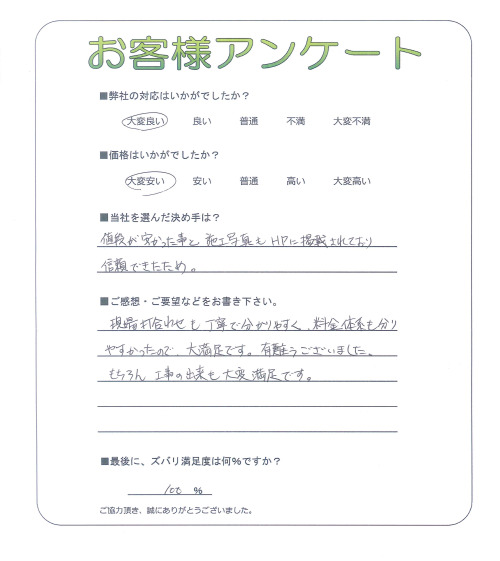 お客様アンケート
■弊社の対応はいかがでしたか？
大変良い 良い 普通 不満 大変不満
■価格はいかがでしたか？
大変安い 安い 普通 高い 大変高い
■当社を選んだ決め手は？
値段が安かった事と施工写真もHPに掲載されており
信頼できたため。
■ご感想・ご要望などをお書き下さい。
現場打合わせも丁寧で分かりやすく、料金体系も分り
やすかったので、大満足です。有難うございました。
もちろん工事の出来も大変満足です。
■最後に、ズバリ満足度は何％ですか？
100 %
ご協力頂き、誠にありがとうございました。